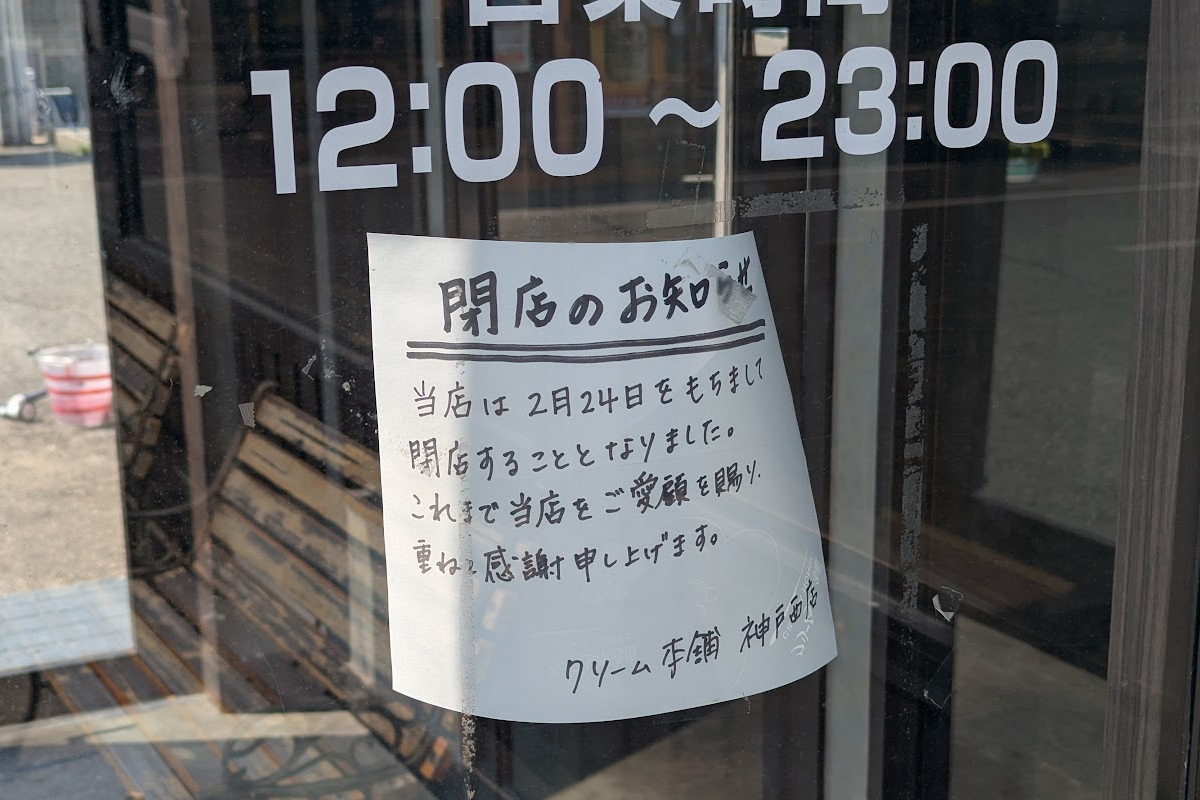 営業時間
12:00 ~ 23:00
閉店のお知らせ
当店は2月24日をもちまして
閉店することとなりました。
これまで当店をご愛顧を賜り、
重ねて感謝申し上げます。
クリーム本舗 神戸西店